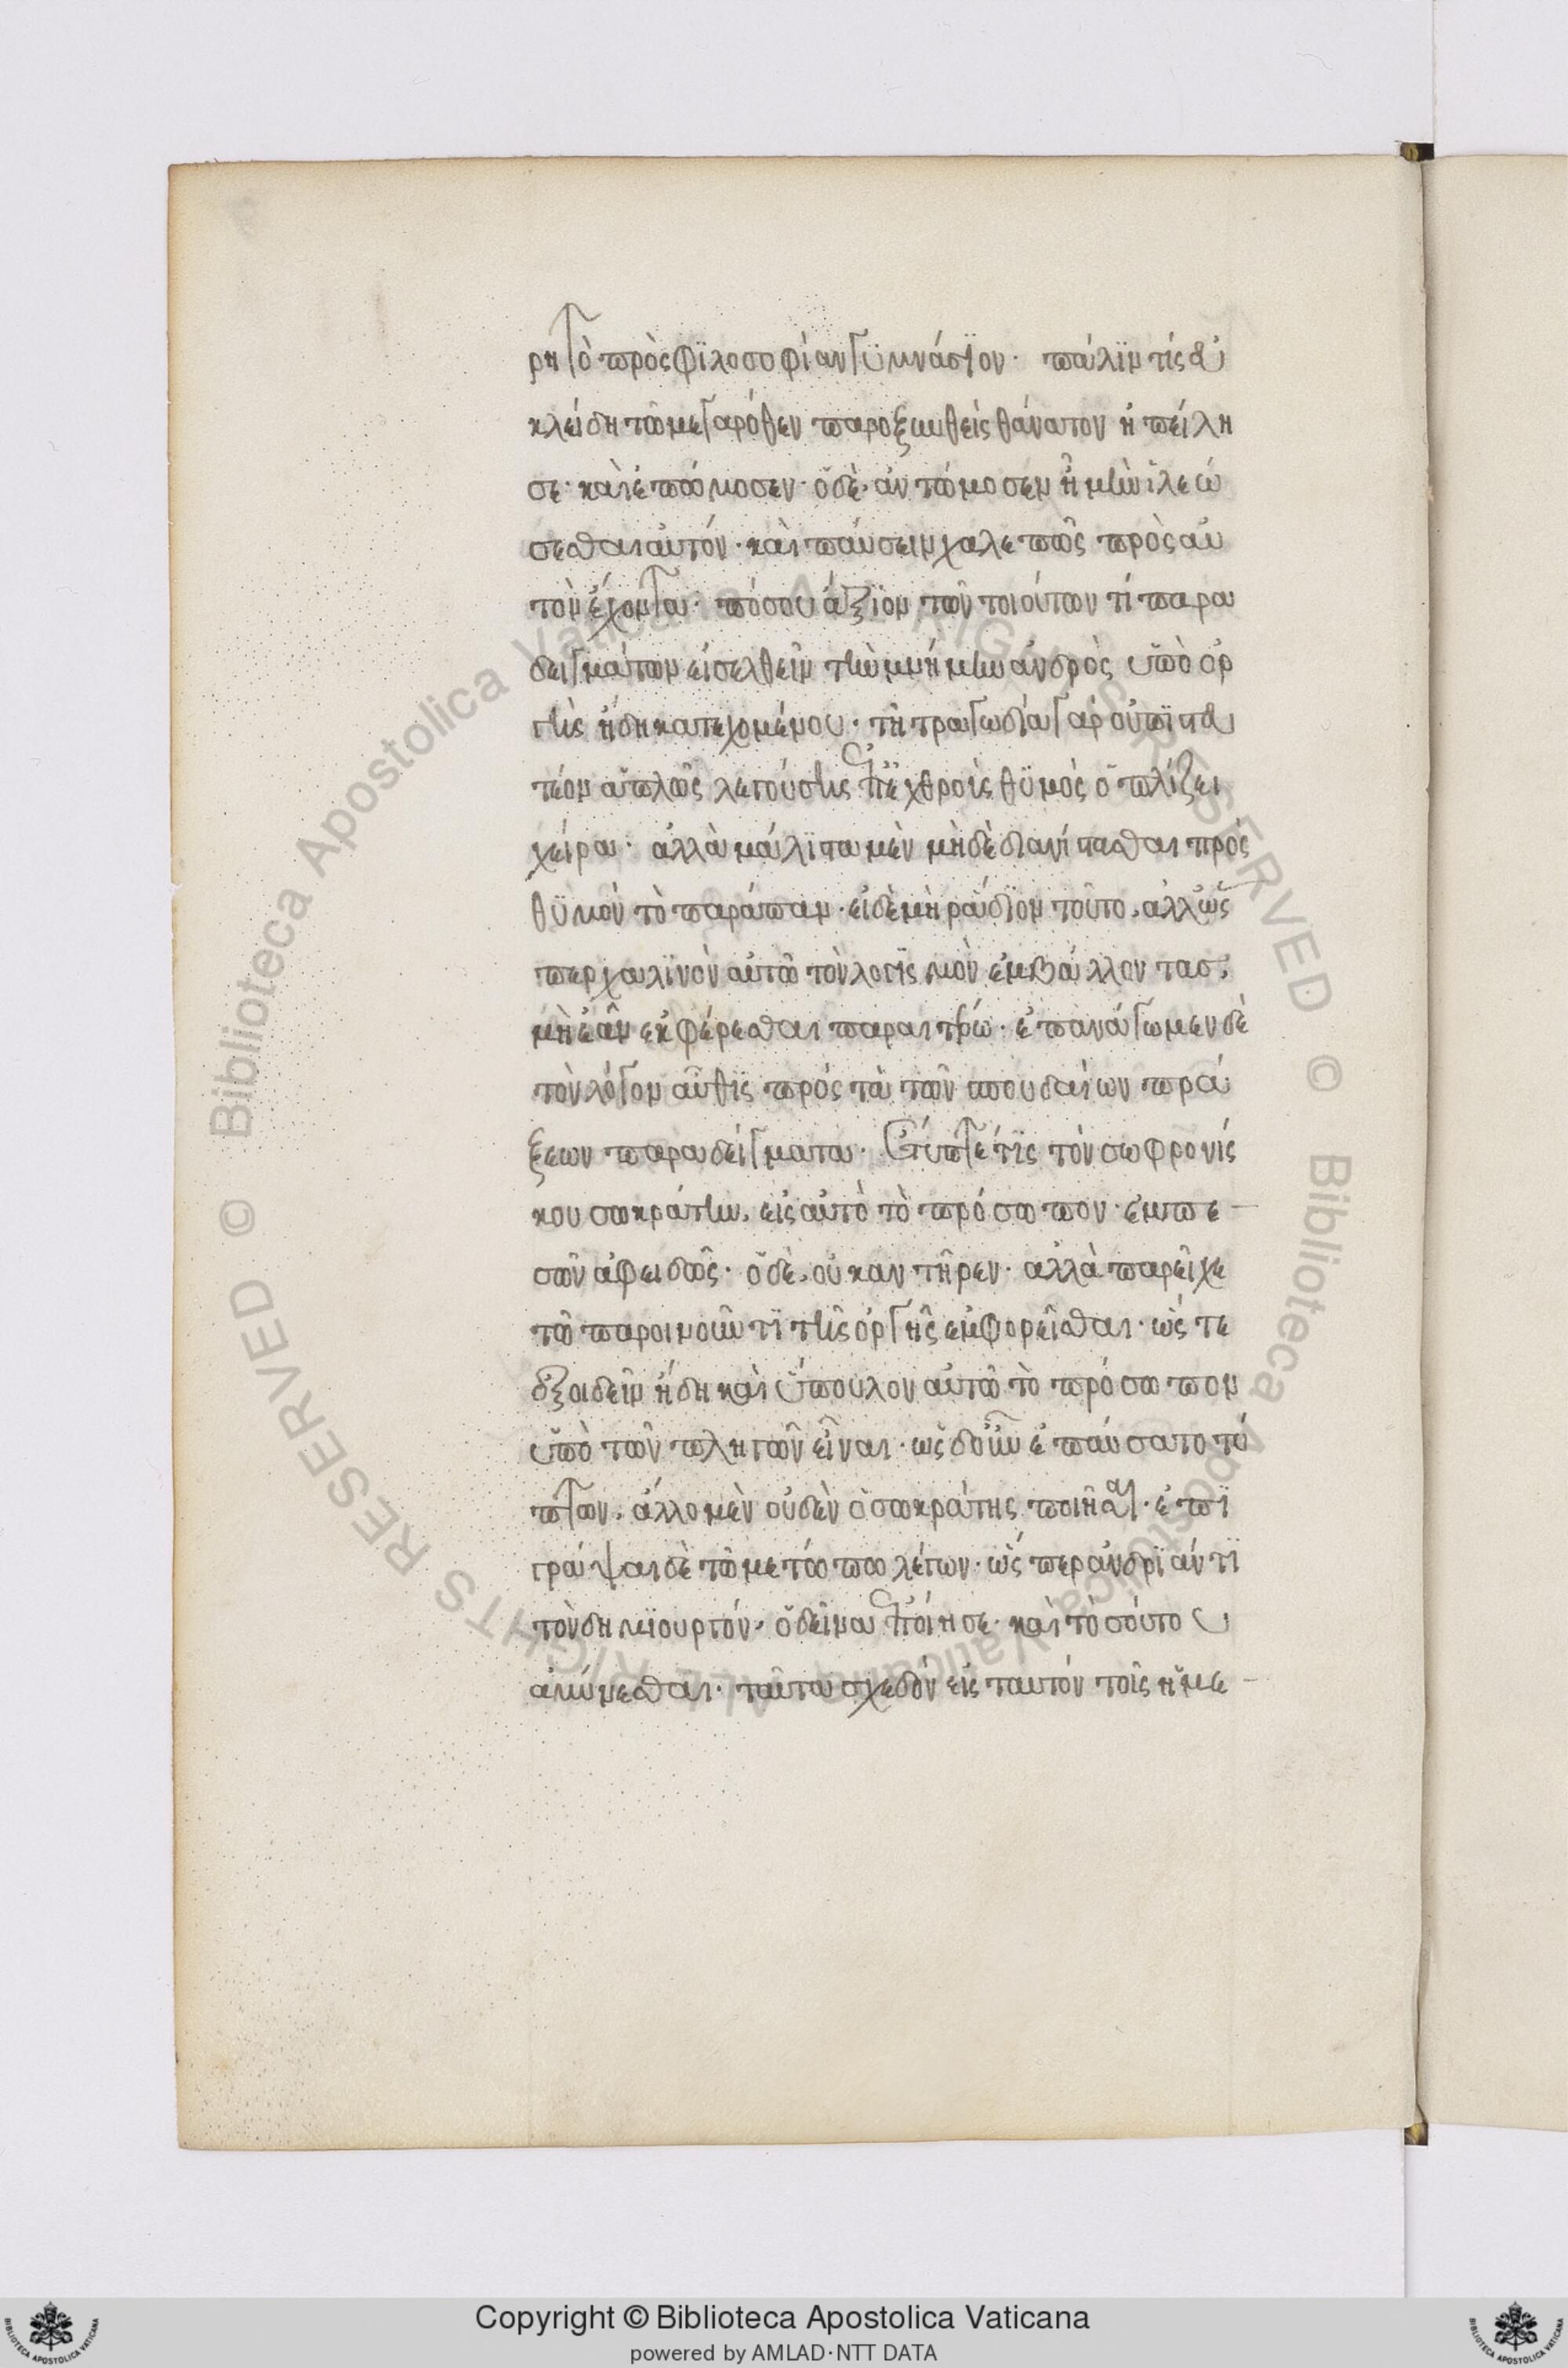 ρητο πρὸς φϊλοσοφίαν γϋμνάσϊον· πάλϊν τίς εὐ
κλείδη τῶ μεγαρόθεν παροξυνθεὶς θάνατον ἠπείλη
σε· καὶ ἐπώμοσεν· ὁ δὲ, ἀντώμοσεν ἦ μὴν ἵλεώ
σεσθαι αὐτόν· καὶ παύσειν χαλεπῶς πρὸς αὐ
τὸν ἔχοντα· πόσου ἄξϊον τῶν τοιούτων τί παρα
δειγμάτων εἰσελθεῖν τὴν μνήμην ἀνδρὸς ὑπὸ ὀρ
γῆς ἤδη κατεχομένου· τῆ τραγωδία γὰρ οὐ πϊστευ
τέον ἁπλῶς λεγούσης ἐπ' ἐχθροῖς θϋμὸς ὁπλίζει
χεῖρα· ἀλλὰ μάλϊστα μὲν μὴ δὲ διανίστασθαι πρὸς
θϋμὸν τὸ παράπαν· εἰ δὲ μὴ ῥάδϊον τοῦτο, ἀλλ' ὥς
περ χαλϊνὸν αὐτῶ τὸν λογϊσμὸν ἐμβάλλοντας,
μὴ ἐᾶν ἐκφέρεσθαι περαιτέρω· ἐπανάγωμεν δὲ
τὸν λόγον αὖθϊς πρὸς τὰ τῶν σπουδαίων πρά
ξεων παραδείγματα· ἔτυπτέ τϊς τὸν σωφρονίς
κου σωκράτην, εἰς αὐτὸ τὸ πρόσωπον· ἐμπε
σῶν ἀφειδῶς· ὁ δὲ, οὐκ ἀντῆρεν· ἀλλὰ παρεῖχε
τῶ παροινοῦντϊ τῆς ὀργῆς ἐμφορεῖσθαι· ὥς τε
ἐξοιδεῖν ἤδη καὶ ὕπουλον αὐτῶ τὸ πρόσωπον
ὑπὸ τῶν πληγῶν εἶναι· ὡς δ' οὖν ἐπαύσατο τύ
πτων, ἄλλο μὲν οὐδὲν ὁ σωκράτης ποιῆσαι· ἐπϊ
γράψαι δὲ τῶ μετώπω λέγων· ὥς περ ἀνδρϊάντϊ
τὸν δημϊουργόν, ὁ δεῖνα ἐποίησε· καὶ τοσοῦτο
ἀμύνεσθαι· ταῦτα σχεδὸν εἰς ταυτὸν τοῖς ἡμε
Copyright © Biblioteca Apostolica Vaticana
powered by AMLAD·NTT DATA